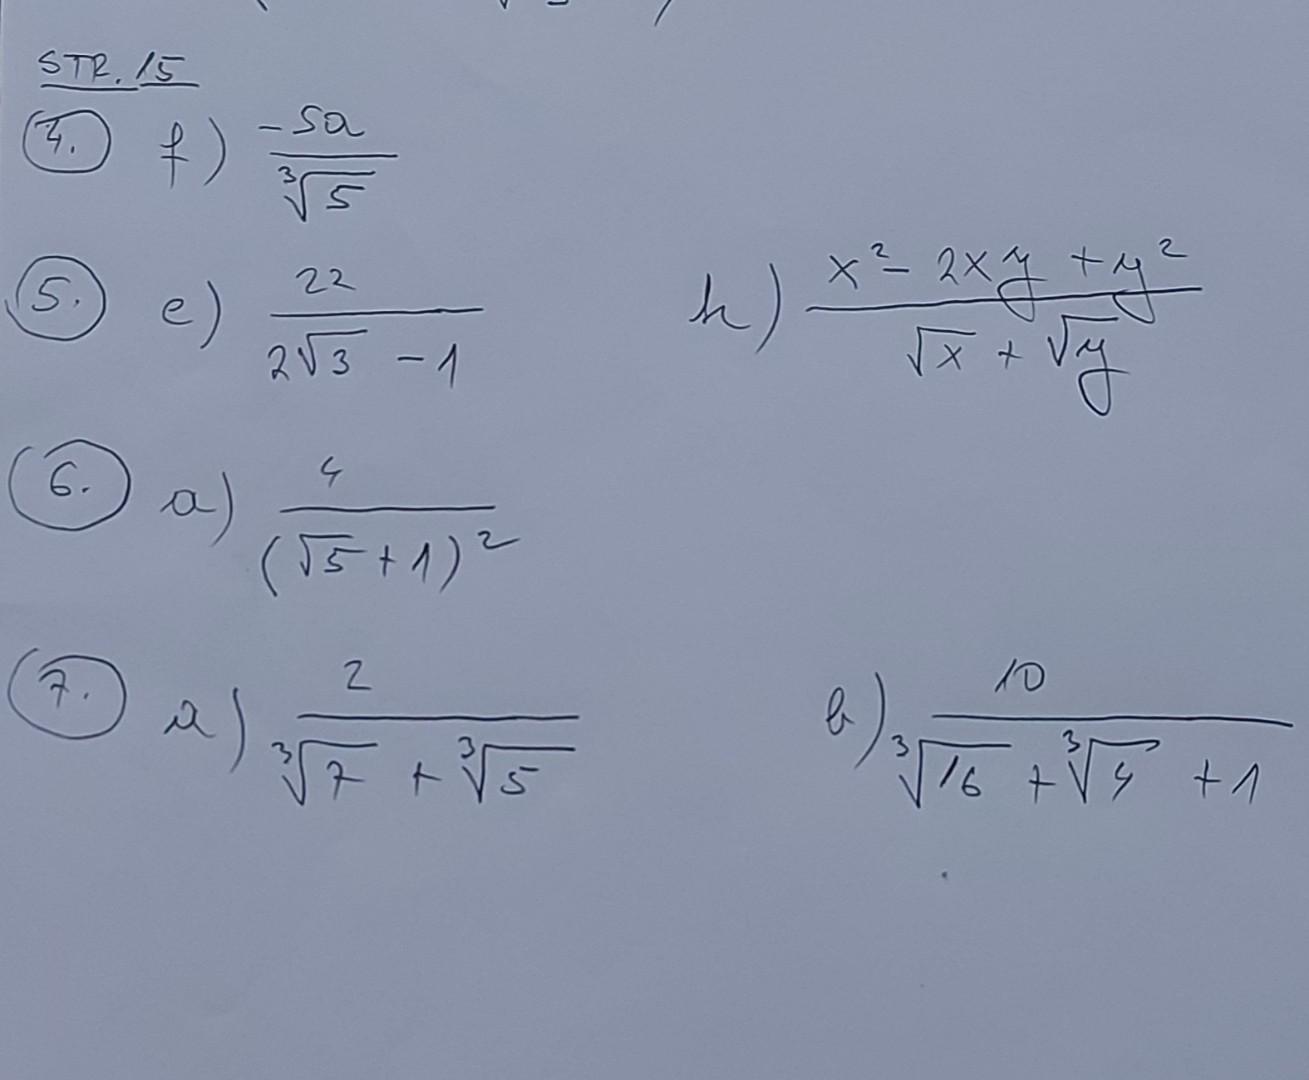 STR. 15
4. f) -5a / ∛5
5. e) 22 / (2√3 - 1)    h) (x² - 2xy + y²) / (√x + √y)
6. a) 4 / (√5 + 1)²
7. a) 2 / (∛7 + ∛5)    b) 10 / (∛16 + ∛4 + 1)